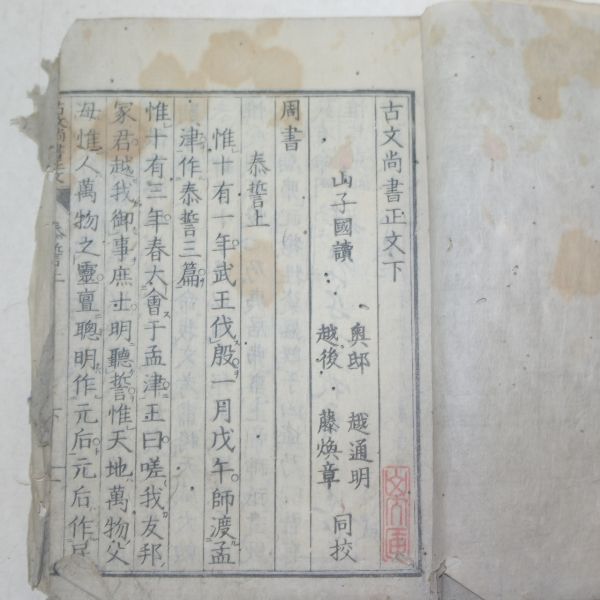 古文尚書正文下
山子國讀
奥邸 越通明
越後 藤煥章
同挍
周書
泰誓上
惟十有一年武王伐殷一月戊午師渡孟
津作泰誓三篇
惟十有三年春大會于孟津王曰嗟我友邦
冢君越我御事庶士明聽誓惟天地萬物父
母惟人萬物之靈亶聰明作元后元后作民